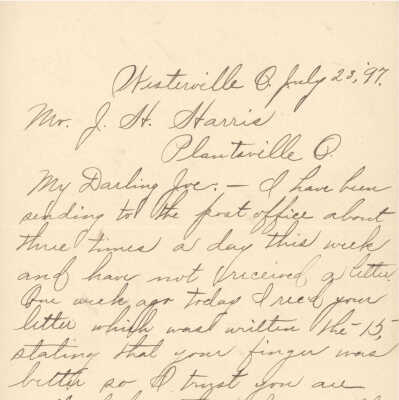 Westerville O. July 23, '97.
Mr. J. H. Harris
Plantsville O.
My Darling Joe: — I have been
sending to the post office about
three times a day this week
and have not received a letter.
One week ago today I recd your
letter which was written the 15,
stating that your finger was
better so I trust you are